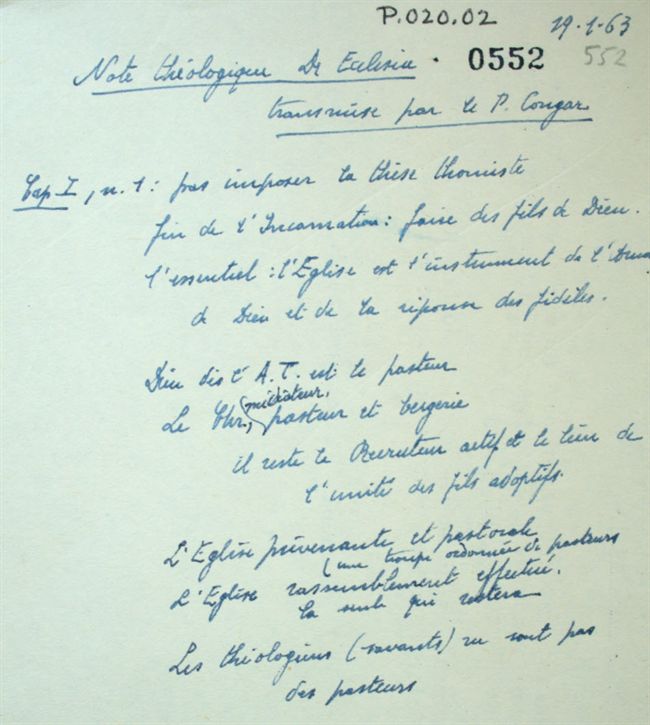 P.020.02
19-1-63
0552
552
Note théologique De Ecclesia
transmise par le P. Congar
Cap I, n. 1 : pas imposer la thèse thomiste
fin de l'Incarnation : faire des fils de Dieu.
l'essentiel : l'Eglise est l'instrument de l'Amour
de Dieu et de la réponse des fidèles.
Dieu dès l'A.T. est le pasteur
médiateur,
Le Chr., pasteur et bergerie
il reste le Recruteur actif et le lien de
l'unité des fils adoptifs.
L'Eglise prévenante et pastorale
(une troupe ordonnée de pasteurs
L'Eglise rassemblement effectué.
la seule qui restera
Les théologiens (-savants) ne sont pas
des pasteurs